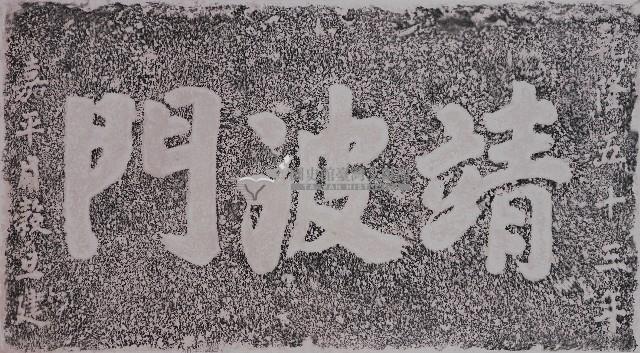 乾隆五十三年
靖波門
嘉平月穀旦建